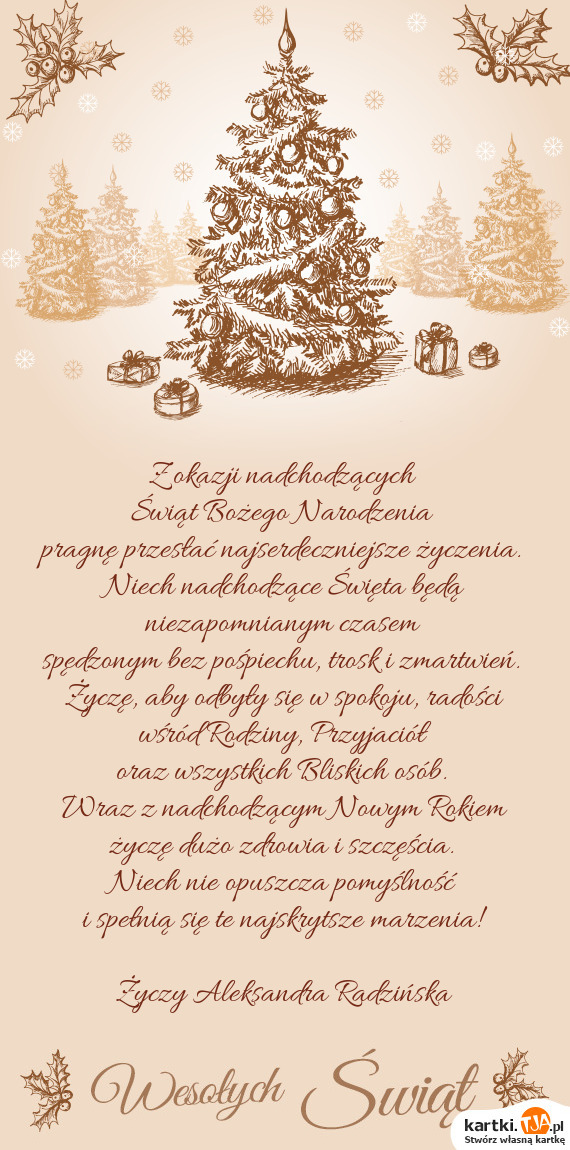 Z okazji nadchodzących
Świąt Bożego Narodzenia
pragnę przesłać najserdeczniejsze życzenia.
Niech nadchodzące Święta będą
niezapomnianym czasem
spędzonym bez pośpiechu, trosk i zmartwień.
Życzę, aby odbyły się w spokoju, radości
wśród Rodziny, Przyjaciół
oraz wszystkich Bliskich osób.
Wraz z nadchodzącym Nowym Rokiem
życzę dużo zdrowia i szczęścia.
Niech nie opuszcza pomyślność
i spełnią się te najskrytsze marzenia!
Życzy Aleksandra Radzińska
Wesołych Świąt
kartki.TJA.pl
Stwórz własną kartkę